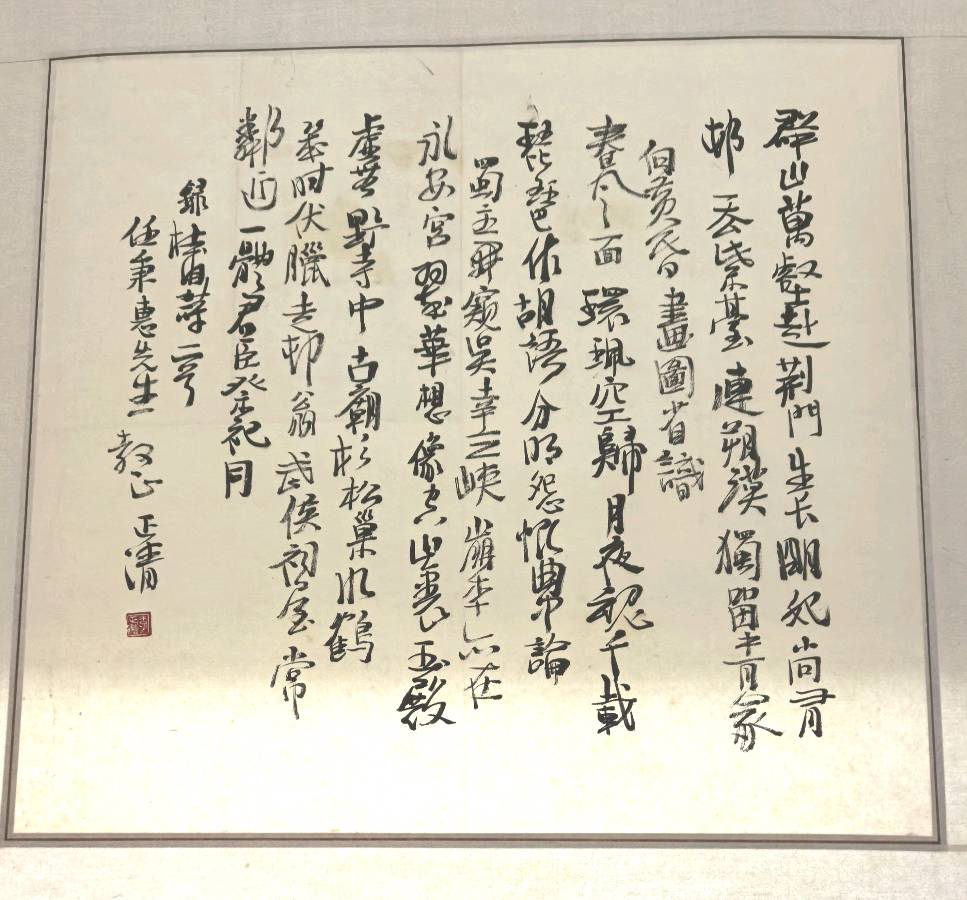 群山萬壑赴荆門生长明妃尚有
邨一去紫臺連朔漠獨留青冢
向黄昏畫圖省識
春风面環珮空歸月夜魂千載
琵琶作胡語分明怨恨曲中論
蜀主窺吴幸三峽崩年亦在
永安宮翠華想像空山裏玉殿
虚無野寺中古廟杉松巢水鶴
歲时伏臘走邨翁武侯祠屋常
鄰近一體君臣祭祀同
録杜甫詩二首
任秉惠先生教正 正清